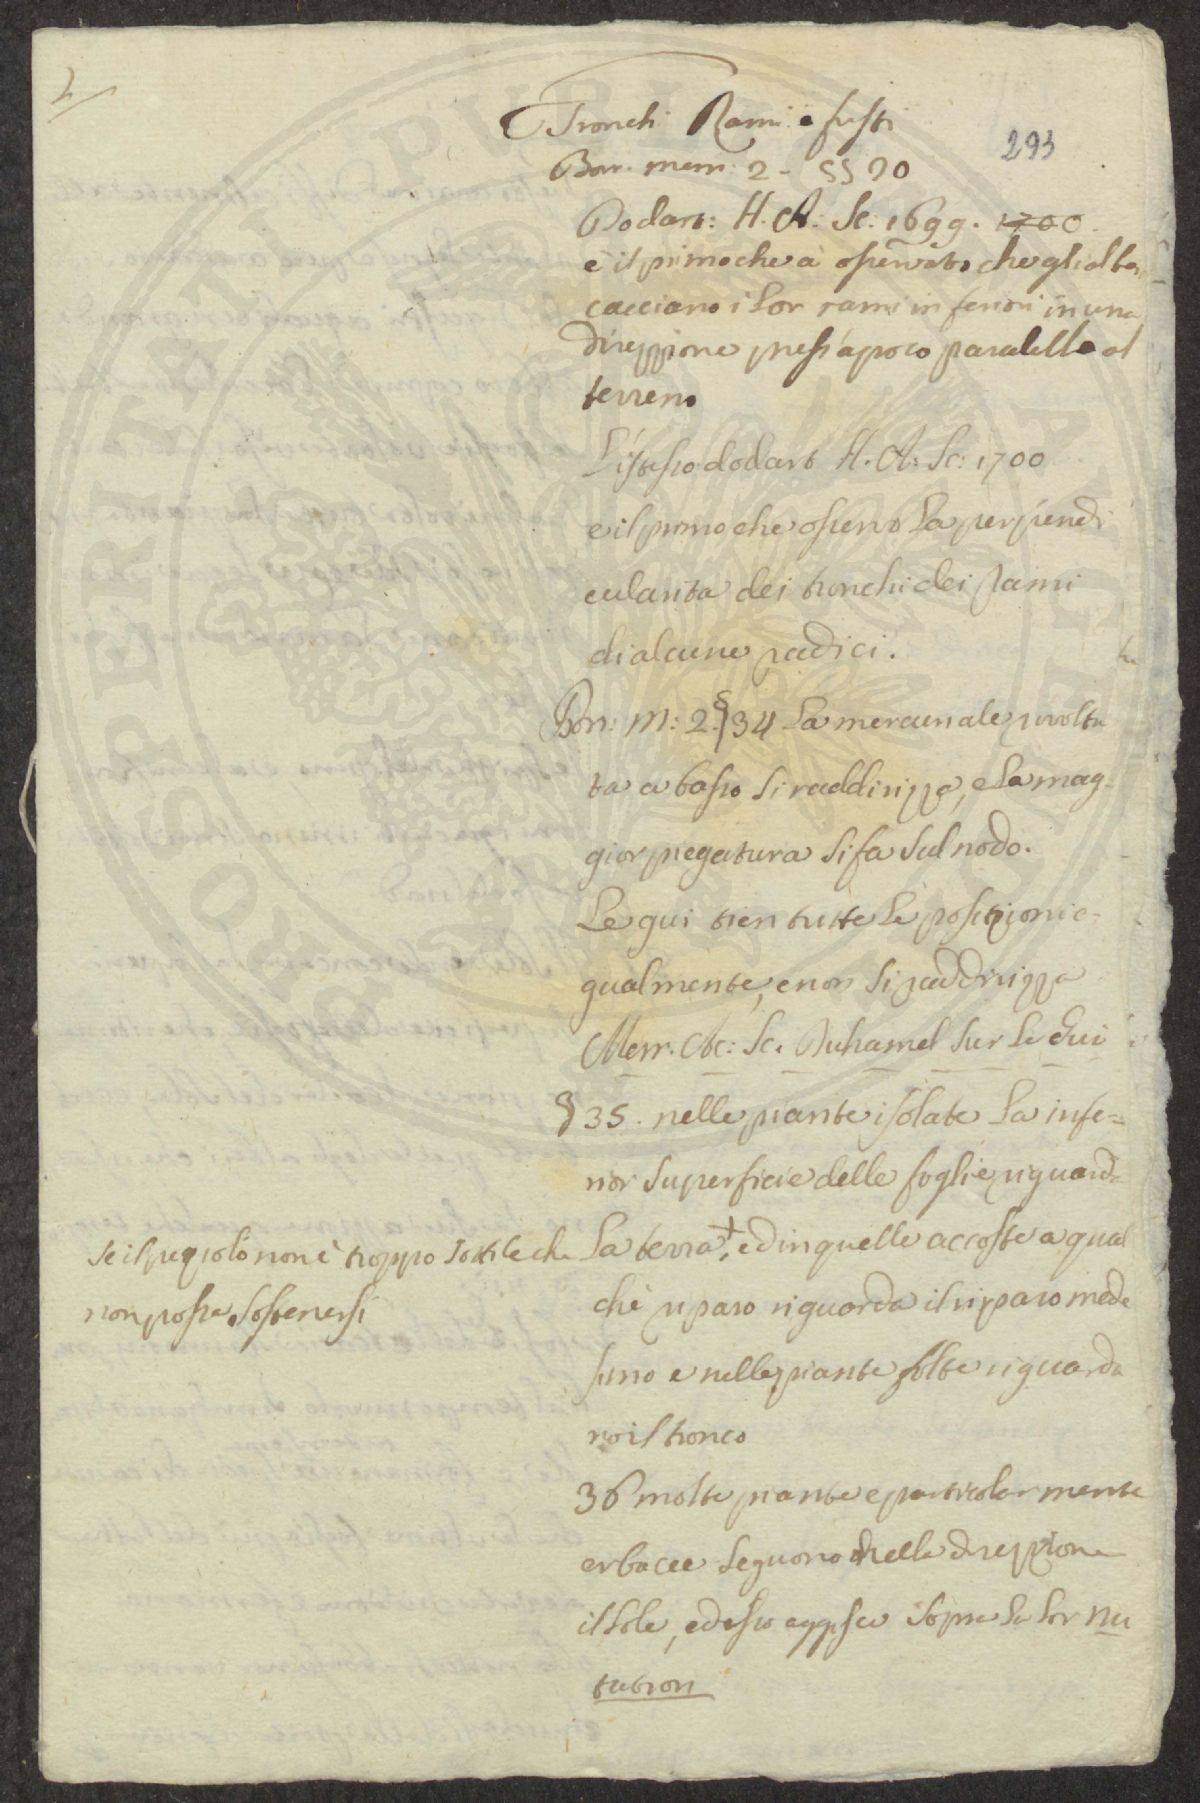 2
Tronchi Rami e fusti
293
Bon. mem: 2 - §§ 20
Dodart: H. A. Sc: 1699. 1700.
è il primo che à osservato che gli alberi
cacciano i lor rami inferiori in una
direzzione press'a poco paralella al
terreno
L'istesso dodart H. A. Sc: 1700
e il primo che osservò la perpendi
cularita dei tronchi dei Rami
di alcune radici.
Bon: m: 2. § 34 la mercuriale rivolta
ta a basso si raddirizza, e la mag-
gior piegatura si fa sul nodo.
Le gui tien tutte le posizioni e-
gualmente, e non si raddrizza
Mem. Ac: Sc. Duhamel sur le Gui
§ 35. nelle piante isolate la infe-
rior superficie delle foglie riguarda
la terra +, ed in quelle accoste a qual
che riparo riguarda il riparo mede
simo e nelle piante folte riguarda
no il tronco
se il peziolo non è troppo sottile che
non possa sostenersi
36 molte piante e particolarmente
erbacee seguono nella direzzione
il sole, ed esso aggisce sopra la lor nu
tation